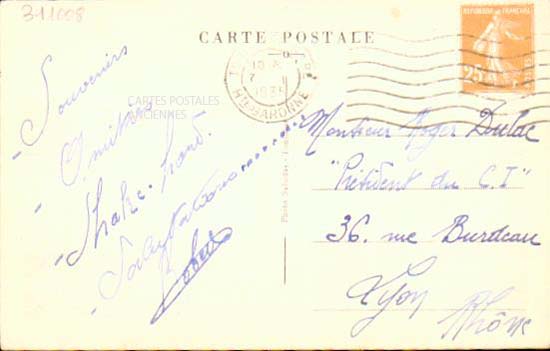 311008
CARTE POSTALE
REPUBLIQUE FRANÇAISE
25
10
7
1935
Hte GARONNE
CARTES POSTALES
ANCIENNES
- Souvenirs
- Amitiés
- Shake-hand.
- Salutations..........
Robert
Monsieur Roger Dulac
"Président du C.I"
36. rue Burdeau
Lyon
Rhône